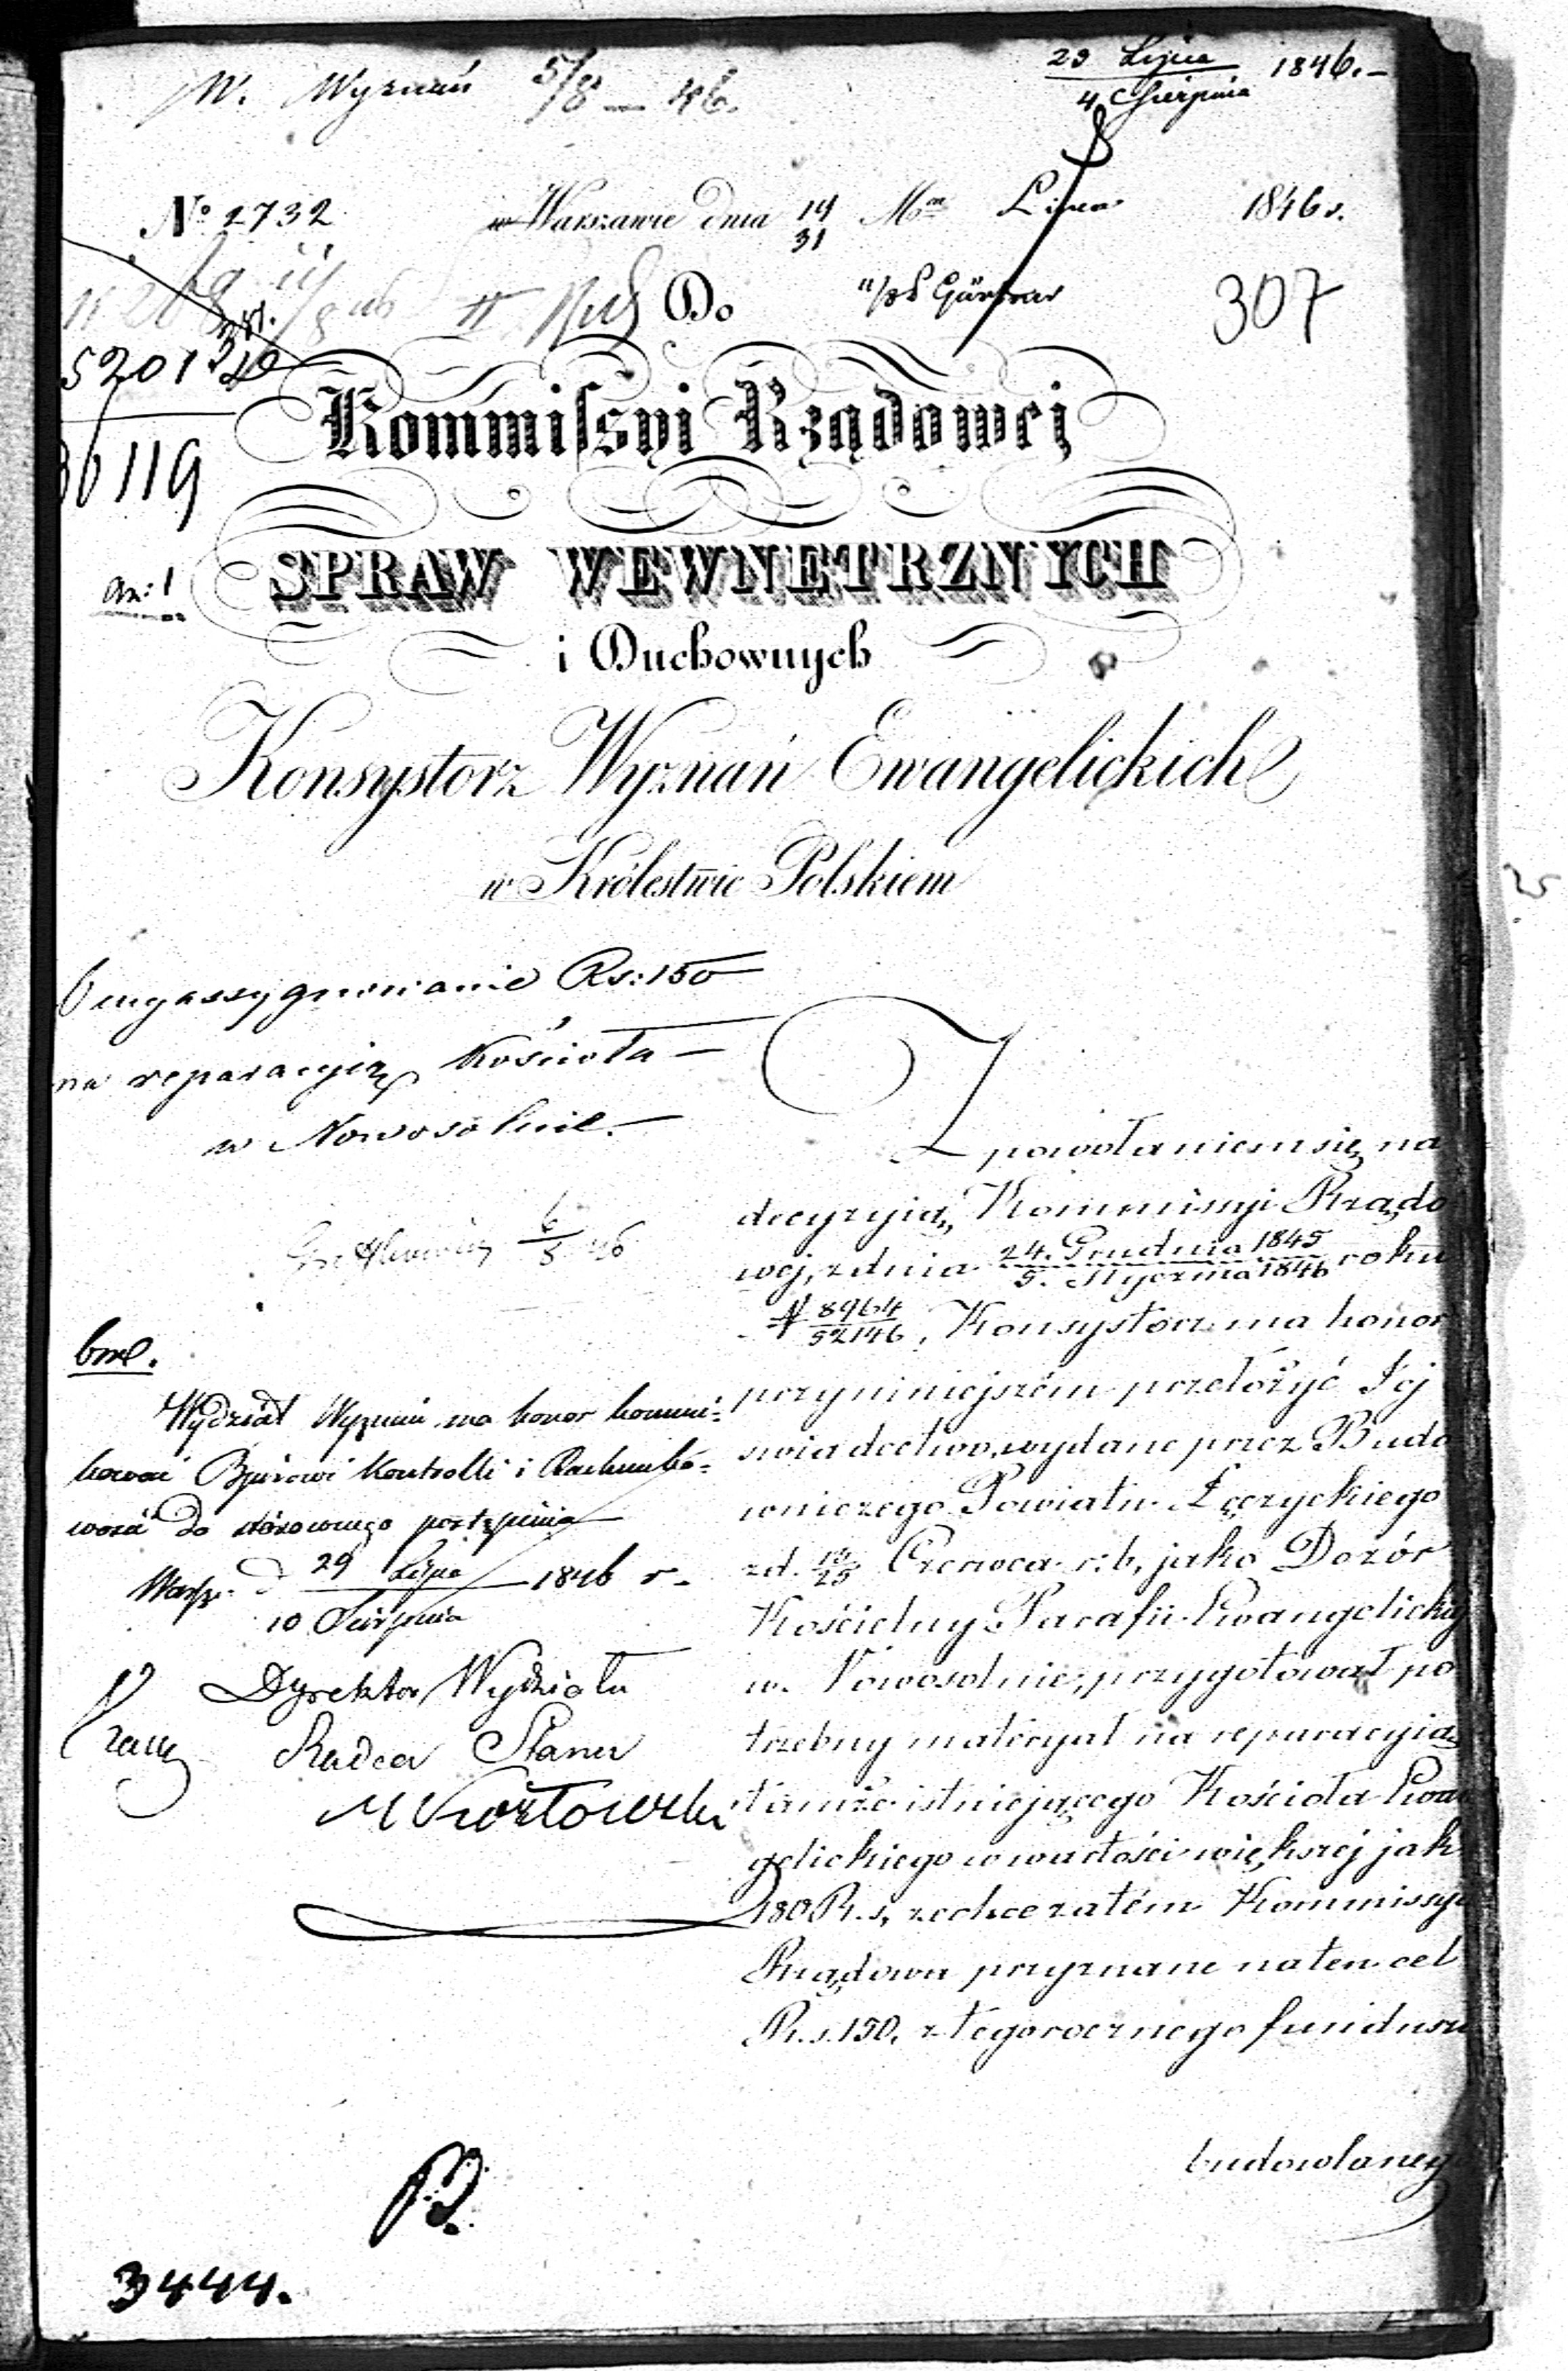 W. Wyznań 5/8 — 46.
23 Lipca / 4 Sierpnia 1846.—
No 2732 w Warszawie dnia 19/31 Mca Lipca 1846 r.
Do
307
52012
36119
an: 1
Kommissyi Rządowej
SPRAW WEWNĘTRZNYCH
i Duchownych
Konsystorz Wyznań Ewangelickich
w Królestwie Polskiem
O wyassygnowanie Rs: 150
na reparacyią Kościoła —
w Nowosolnie. —
6/8 46
Z powołaniem się na
decyzyią Kommissyi Rządo
wej, z dnia 24. Grudnia 1845 / 5. Stycznia 1846 roku
N 8964/52146, Konsystorz ma honor
przyniniejszém przełożyć Jej
swiadectwo, wydane przez Budo
wniczego Powiatu Łęczyckiego
z d. 13/25 Czerwca r: b, jako Dozór
Kościelny Parafii Ewangelickiej
w Nowosolnie, przygotował po
trzebny materyał na reparacyią
tamże istniejącego Kościoła Ewan
gelickiego w wartości większej jak
180 R. s, zechce zatém Kommissya
Rządowa przyznane na ten cel
R. s. 150, z tegorocznego funduszu
budowlanego
bml.
Wydział Wyznań ma honor komuni-
kować Bjurowi Kontrolli i Rachunko-
wości do stósownego postąpienia
Warsz. d 29 Lipca / 10 Sierpnia 1846 r.
Dyrektor Wydziału
Radca Stanu
M Kozłowski
3444.